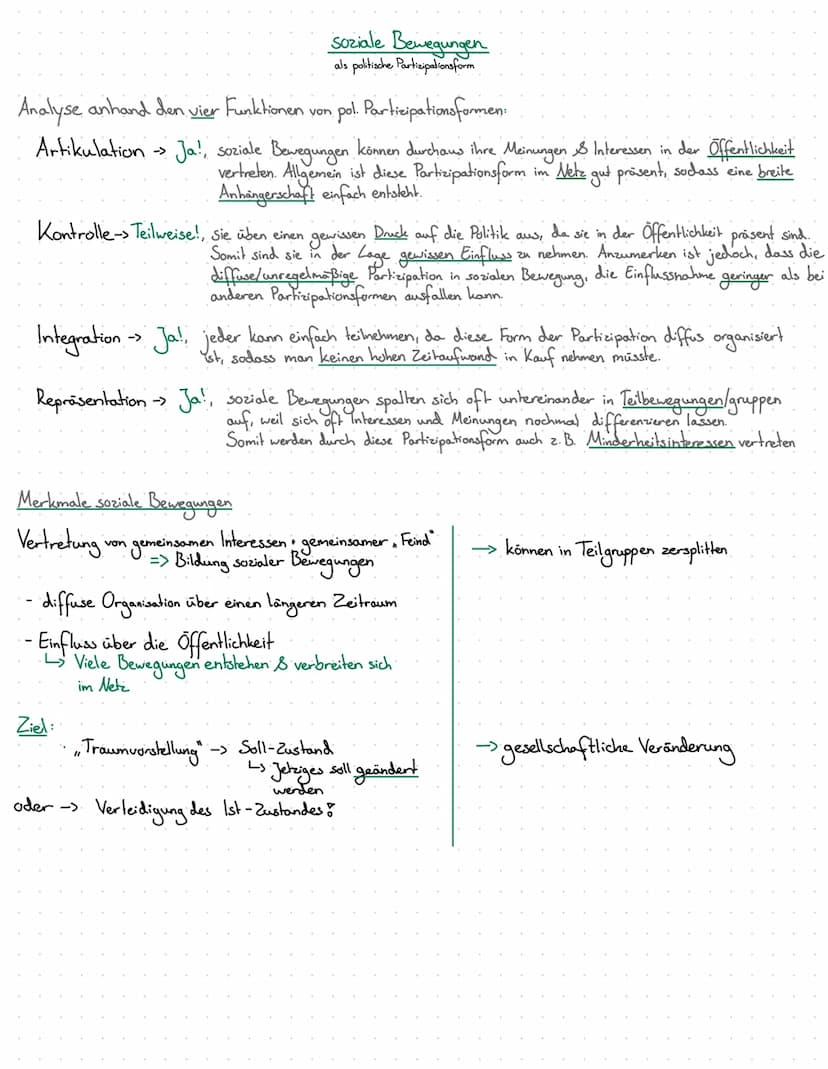 soziale Bewegungen
als politische Partizipationsform
Analyse anhand den vier Funktionen von pol. Partizipationsformen:
Artikulation -> Ja!, soziale Bewegungen können durchaus ihre Meinungen & Interessen in der Öffentlichkeit
vertreten. Allgemein ist diese Partizipationsform im Netz gut präsent, sodass eine breite
Anhängerschaft einfach entsteht.
Kontrolle -> Teilweise!, sie üben einen gewissen Druck auf die Politik aus, da sie in der Öffentlichkeit präsent sind.
Somit sind sie in der Lage gewissen Einfluss zu nehmen. Anzumerken ist jedoch, dass die
diffuse/unregelmäßige Partizipation in sozialen Bewegung, die Einflussnahme geringer als bei
anderen Partizipationsformen ausfallen kann.
Integration -> Ja!, jeder kann einfach teilnehmen, da diese Form der Partizipation diffus organisiert
ist, sodass man keinen hohen Zeitaufwand in Kauf nehmen müsste.
Repräsentation -> Ja!, soziale Bewegungen spalten sich oft untereinander in Teilbewegungen/gruppen
auf, weil sich oft Interessen und Meinungen nochmal differenzieren lassen.
Somit werden durch diese Partizipationsform auch z.B. Minderheitsinteressen vertreten
Merkmale soziale Bewegungen
Vertretung von gemeinsamen Interessen + gemeinsamer „Feind"
=> Bildung sozialer Bewegungen
-> können in Teilgruppen zersplitten
- diffuse Organisation über einen längeren Zeitraum
- Einfluss über die Öffentlichkeit
↳ Viele Bewegungen entstehen & verbreiten sich
im Netz
Ziel:
· „Traumvorstellung" -> Soll-Zustand
-> gesellschaftliche Veränderung
↳ Jetziges soll geändert
werden
oder -> Verteidigung des Ist-Zustandes!